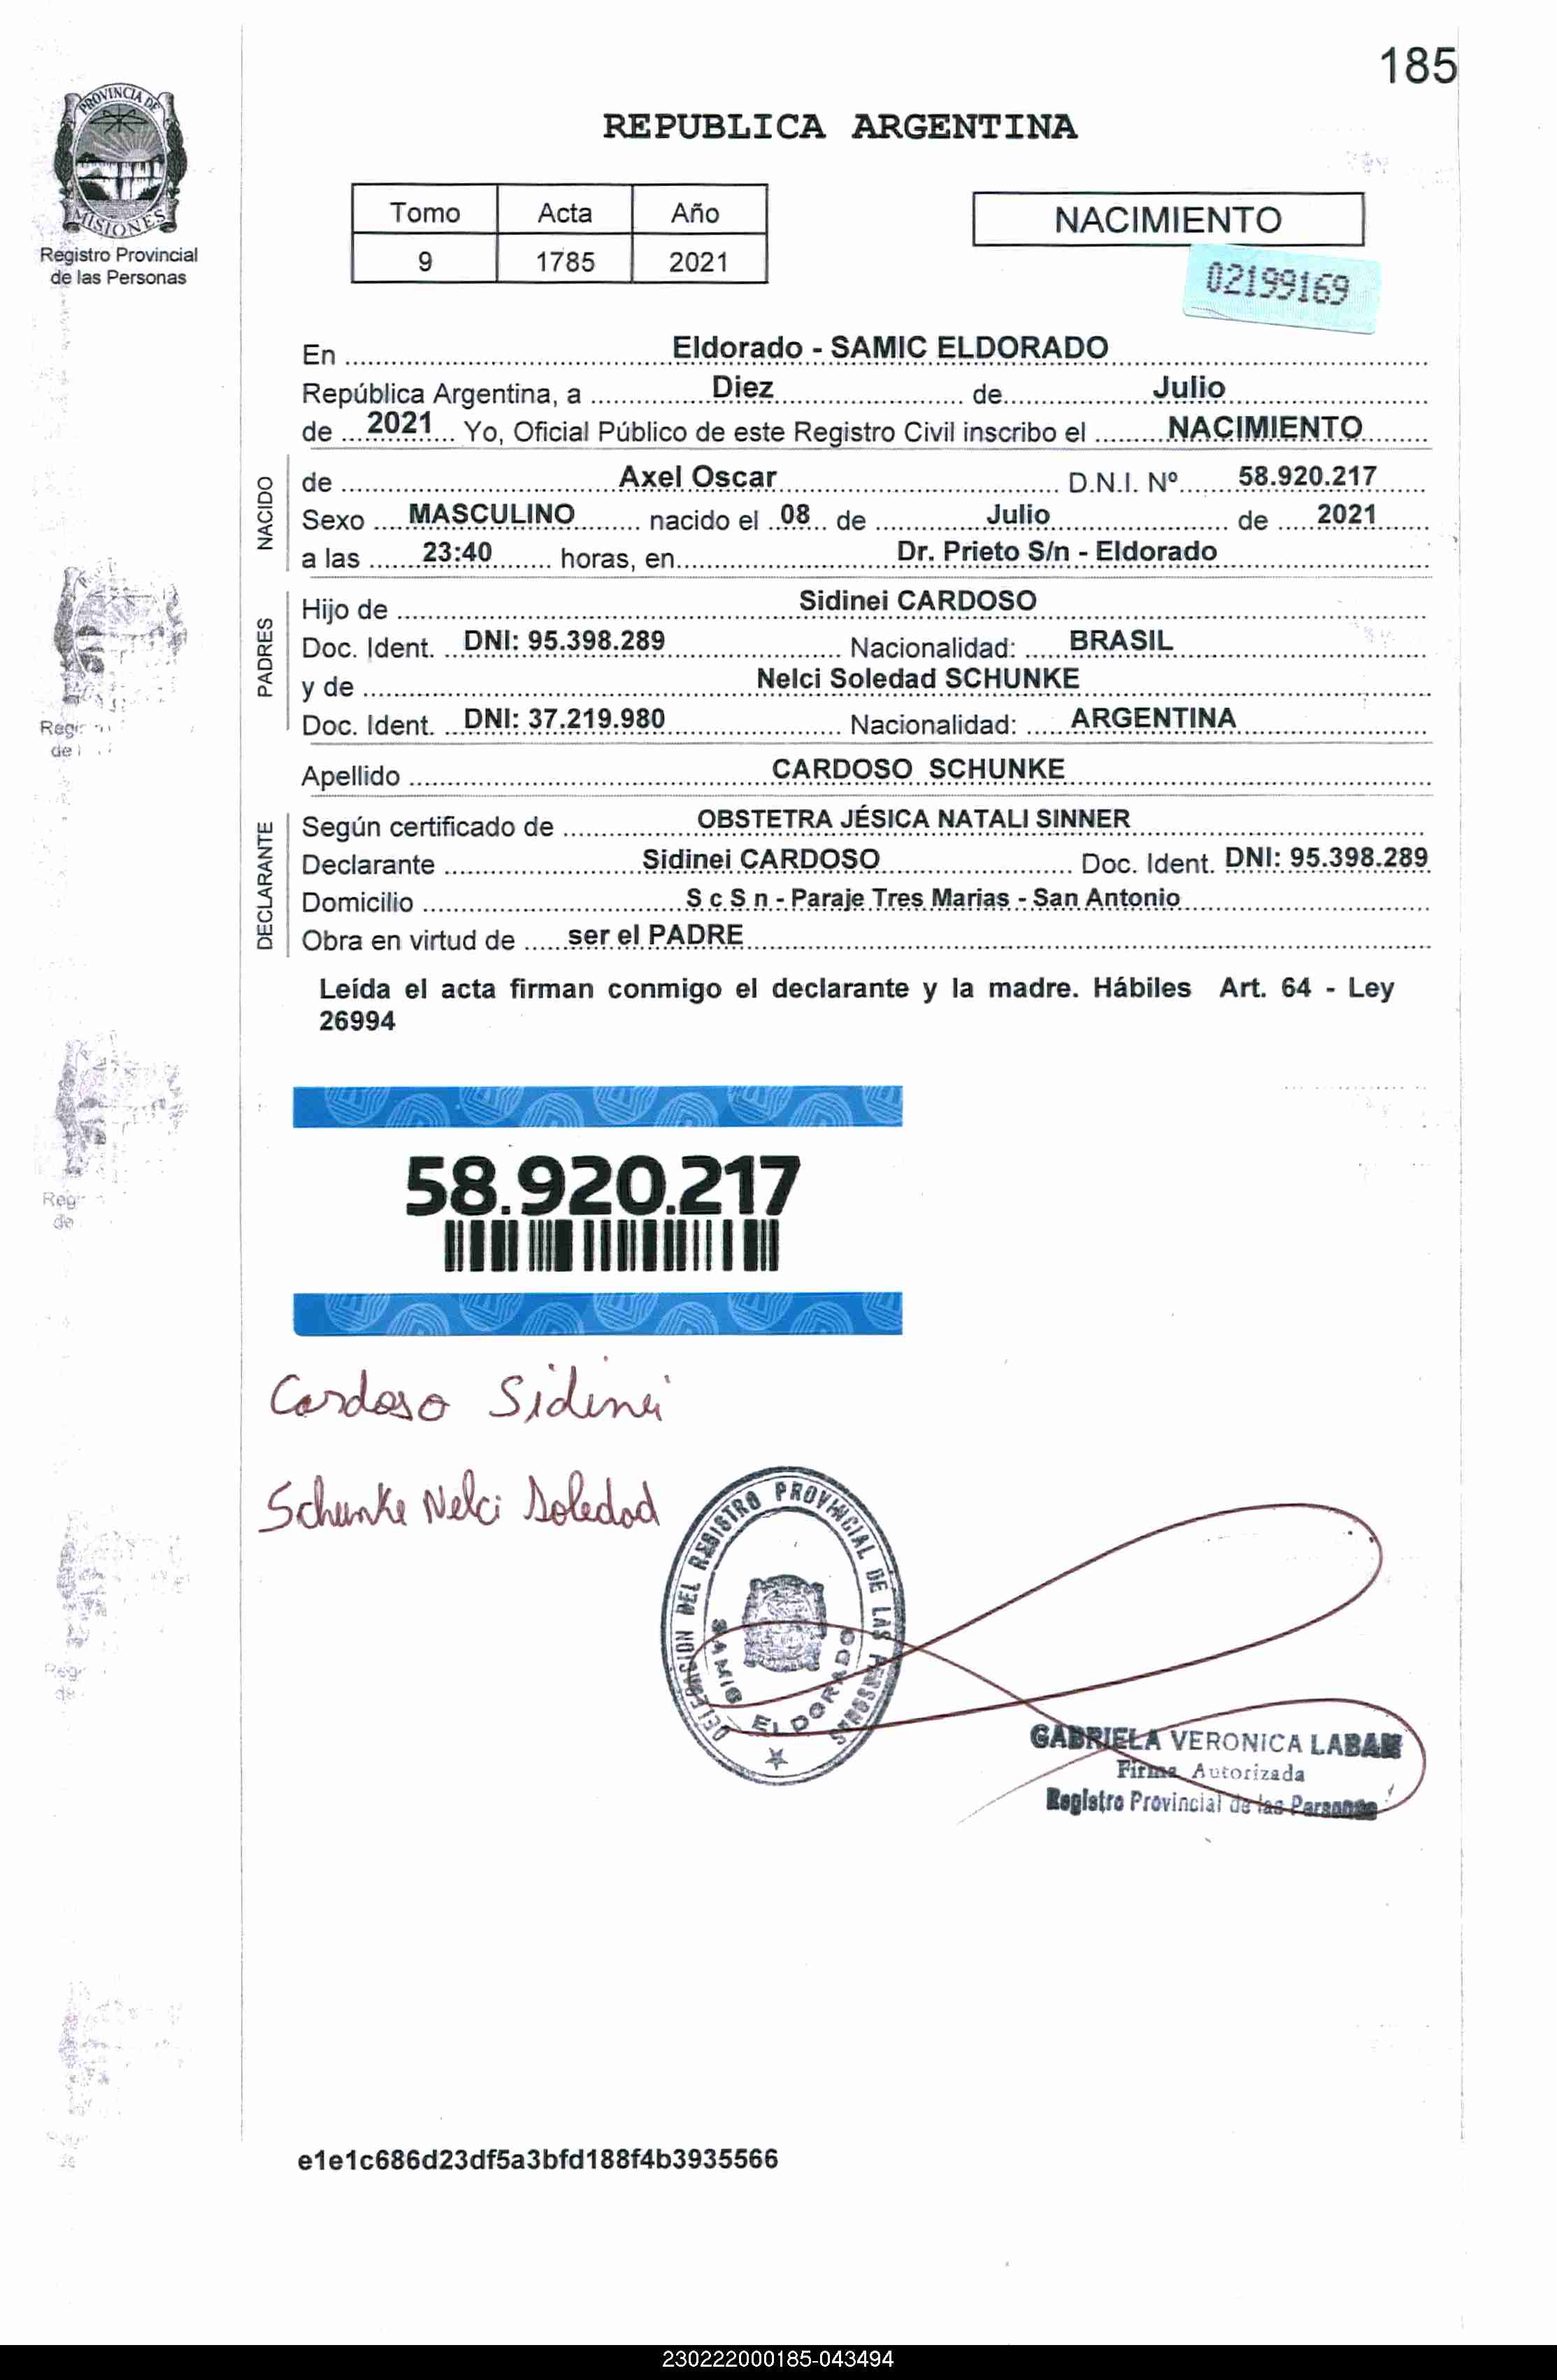 185
PROVINCIA DE
MISIONES
Registro Provincial
de las Personas
REPUBLICA ARGENTINA
Tomo Acta Año
9 1785 2021
NACIMIENTO
02199169
En Eldorado - SAMIC ELDORADO
República Argentina, a Diez de Julio
de 2021 Yo, Oficial Público de este Registro Civil inscribo el NACIMIENTO
NACIDO
de Axel Oscar D.N.I. Nº 58.920.217
Sexo MASCULINO nacido el 08 de Julio de 2021
a las 23:40 horas, en Dr. Prieto S/n - Eldorado
PADRES
Hijo de Sidinei CARDOSO
Doc. Ident. DNI: 95.398.289 Nacionalidad: BRASIL
y de Nelci Soledad SCHUNKE
Doc. Ident. DNI: 37.219.980 Nacionalidad: ARGENTINA
Apellido CARDOSO SCHUNKE
DECLARANTE
Según certificado de OBSTETRA JÉSICA NATALI SINNER
Declarante Sidinei CARDOSO Doc. Ident. DNI: 95.398.289
Domicilio S c S n - Paraje Tres Marias - San Antonio
Obra en virtud de ser el PADRE
Leída el acta firman conmigo el declarante y la madre. Hábiles Art. 64 - Ley
26994
58.920.217
Cardoso Sidinei
Schunke Nelci Soledad
DELEGACION DEL REGISTRO PROVINCIAL DE LAS PERSONAS
SAMIC ELDORADO
GABRIELA VERONICA
Firma Autorizada
Registro Provincial de las Personas
e1e1c686d23df5a3bfd188f4b3935566
230222000185-043494